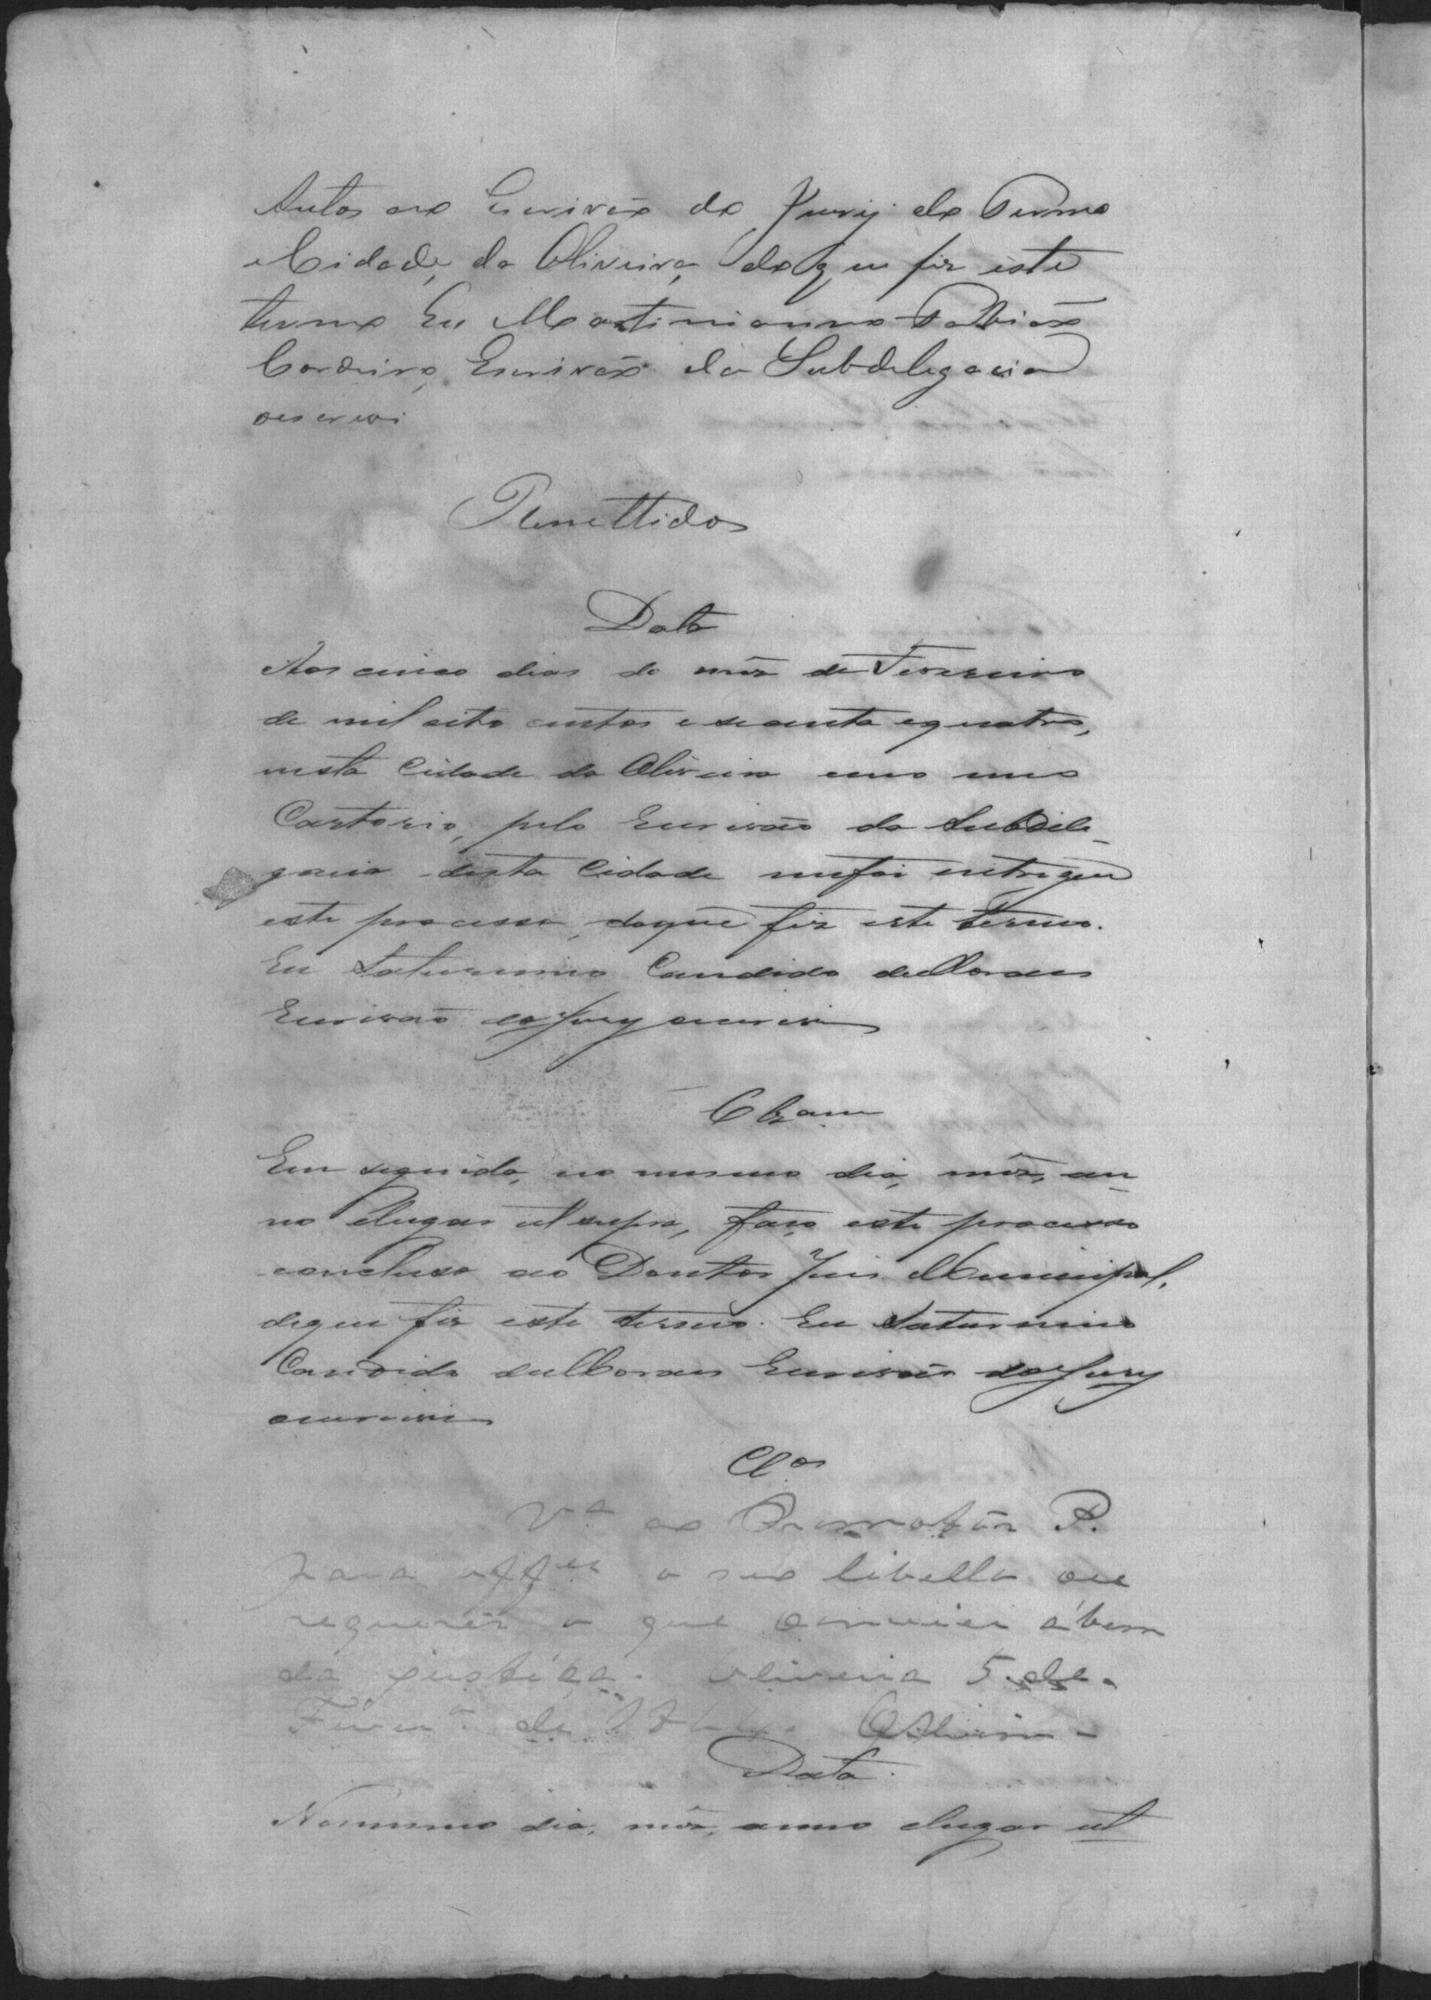 Autos ao Escrivão do Jury do Termo
e Cidade, da Oliveira, do que fiz este
termo Eu Martiniano
Cordeiro, Escrivão da Subdelegacia
oescrevi
Remettidos
Data
Aos cinco dias do mêz de Fevereiro
de mil oito centos e secenta e quatro,
nesta Cidade da Oliveira em meo
Cartorio, pelo Escrivão da Subdele-
gacia desta Cidade mefoi entregue
este processo, doque fiz este termo.
Eu Saturnino Candido deMoraes
Escrivão do Jury oescrevi
Clzam
Em seguida, no mesmo dia, mêz, an-
no elugar ut supra, faço este processo
concluso ao Doutor Juis Municipal,
deque fiz este termo. Eu Saturnino
Candido deMoraes Escrivão do Jury
oescrevi
Clos
Vª ao Promotôr P.
para offer o seo libello ou
requerer o que convier á bem
da justiça. Oliveira 5 de
Fevrº de 1864.
Data.
Nomesmo dia, mêz, anno elugar ut